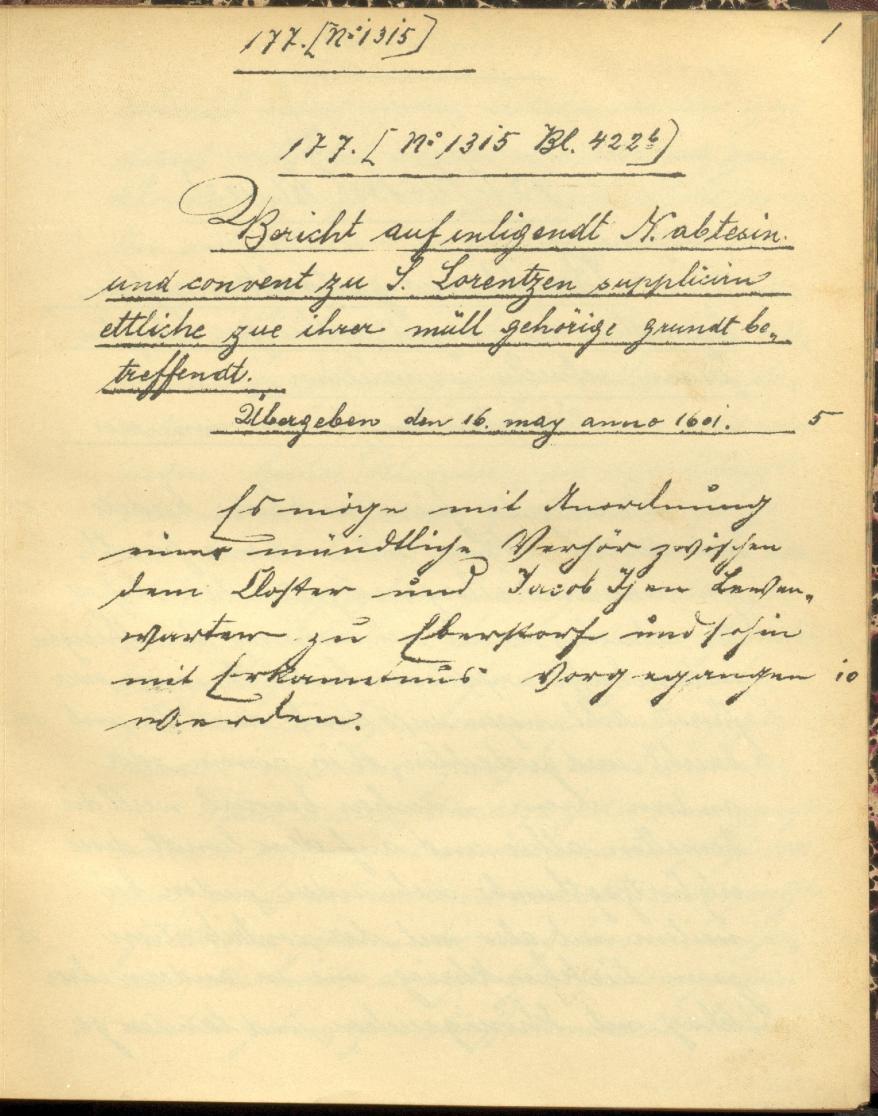 177. [N° 1315] 1
177. [N° 1315 Bl. 422b]
Bericht auf inligendt N. abtesin.
und convent zu S. Lorentzen supplicirn
ettliche zue ihrer müll gehörige grundt be„
treffendt.
Übergeben den 16. may anno 1601. 5
Es möge mit Anordnung
einer mündtliche Verhör zwischen
dem Closter und Jacob
zu Eberstorf und
mit Erkanntnus vorgegangen 10
werden.